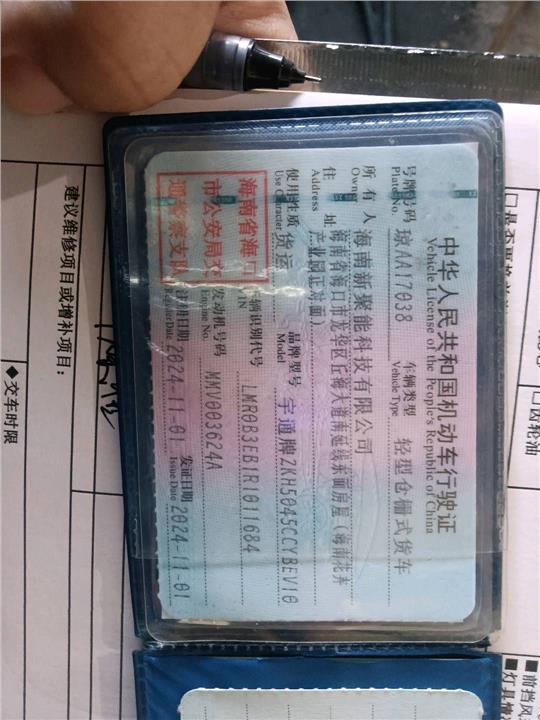 中华人民共和国机动车行驶证
Vehicle License of the People's Republic of China
号牌号码 琼AA17038 车辆类型 轻型仓栅式货车
Plate No. Vehicle Type
所有人 海南新聚能科技有限公司
Owner
住址 海南省海口市龙华区丘海大道南延线东面房屋(海南花卉
Address 产业园正对面)
使用性质 货运 品牌型号 宇通牌ZKH5045CCYBEV10
Use Character Model
海南省海口
市公安局交
通警察支队
车辆识别代号 LMR0B3EB1R1011684
VIN
发动机号码 MMV003624A
Engine No.
注册日期 2024-11-01 发证日期 2024-11-01
Register Date Issue Date
建议维修项目或增补项目:
◆交车时限
齿轮油
■前挡风